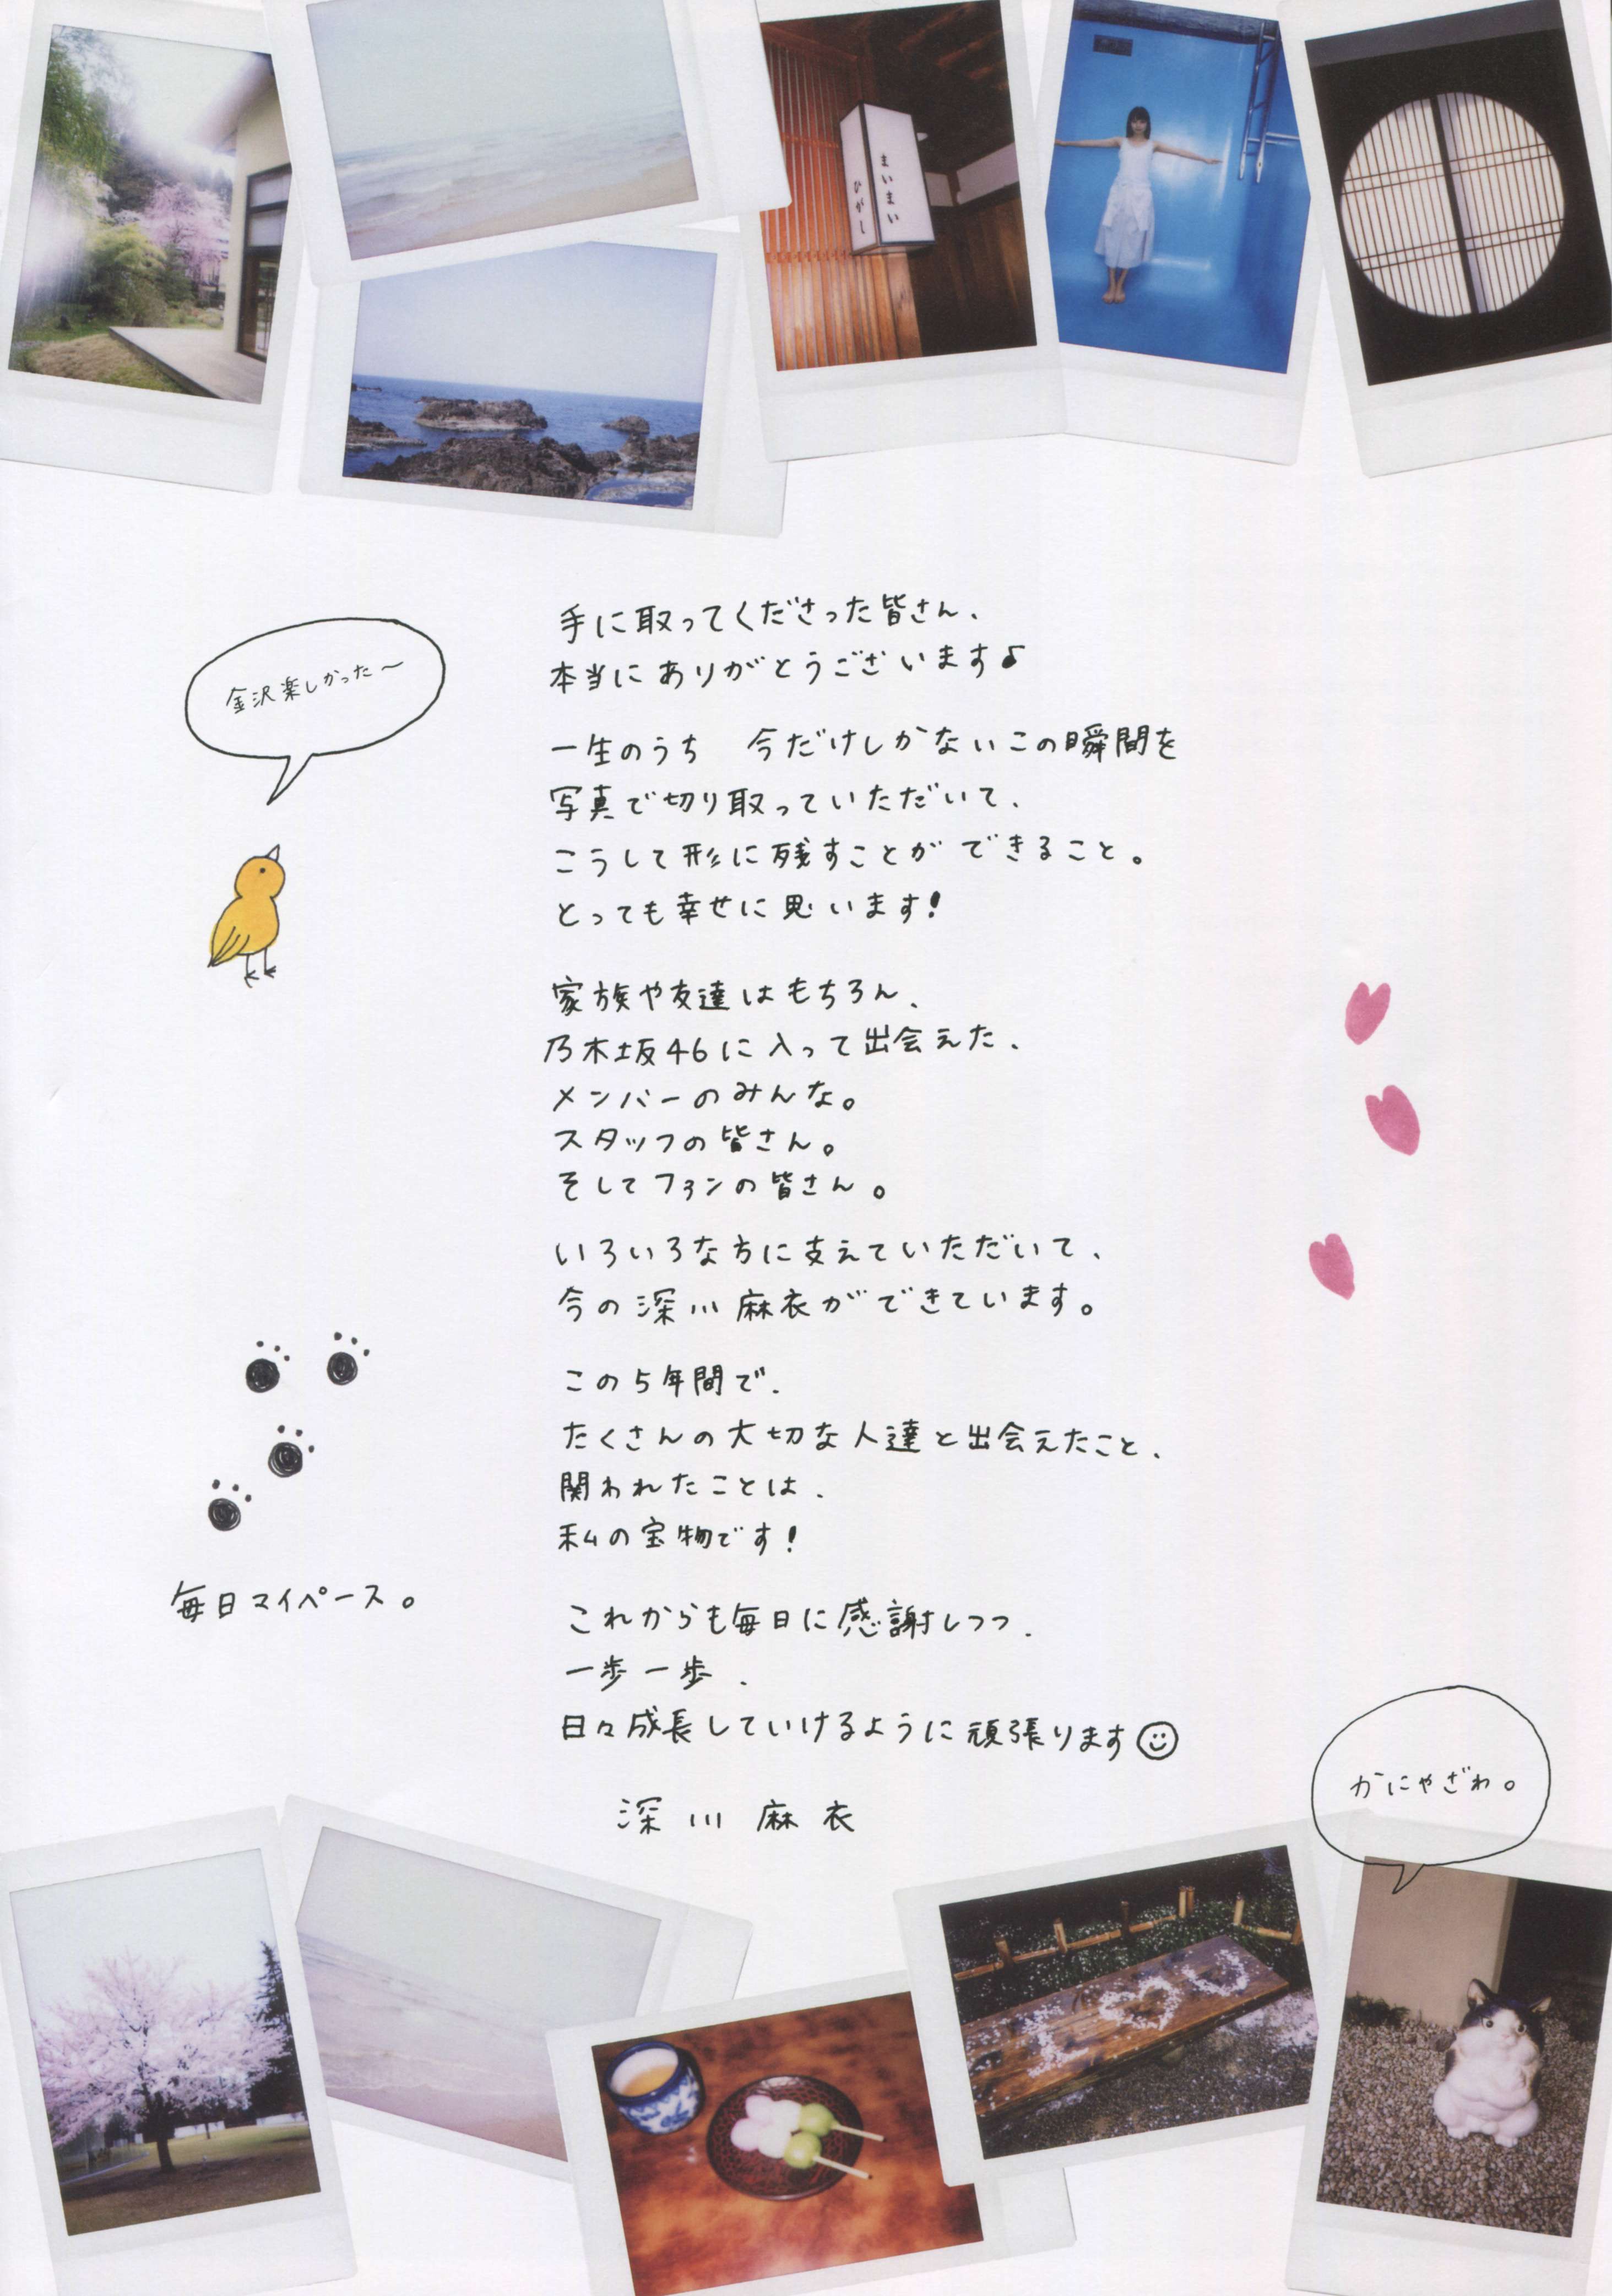 まいまい
ひがし
金沢楽しかった〜
手に取ってくださった皆さん、
本当にありがとうございます♪
一生のうち　今だけしかないこの瞬間を
写真で切り取っていただいて、
こうして形に残すことができること。
とっても幸せに思います!
家族や友達はもちろん、
乃木坂46に入って出会えた、
メンバーのみんな。
スタッフの皆さん。
そしてファンの皆さん。
いろいろな方に支えていただいて、
今の深川麻衣ができています。
この5年間で、
たくさんの大切な人達と出会えたこと、
関われたことは、
私の宝物です!
毎日マイペース。
これからも毎日に感謝しつつ、
一歩一歩、
日々成長していけるように頑張ります☺
深川麻衣
かにゃざわ。
I ♡ U